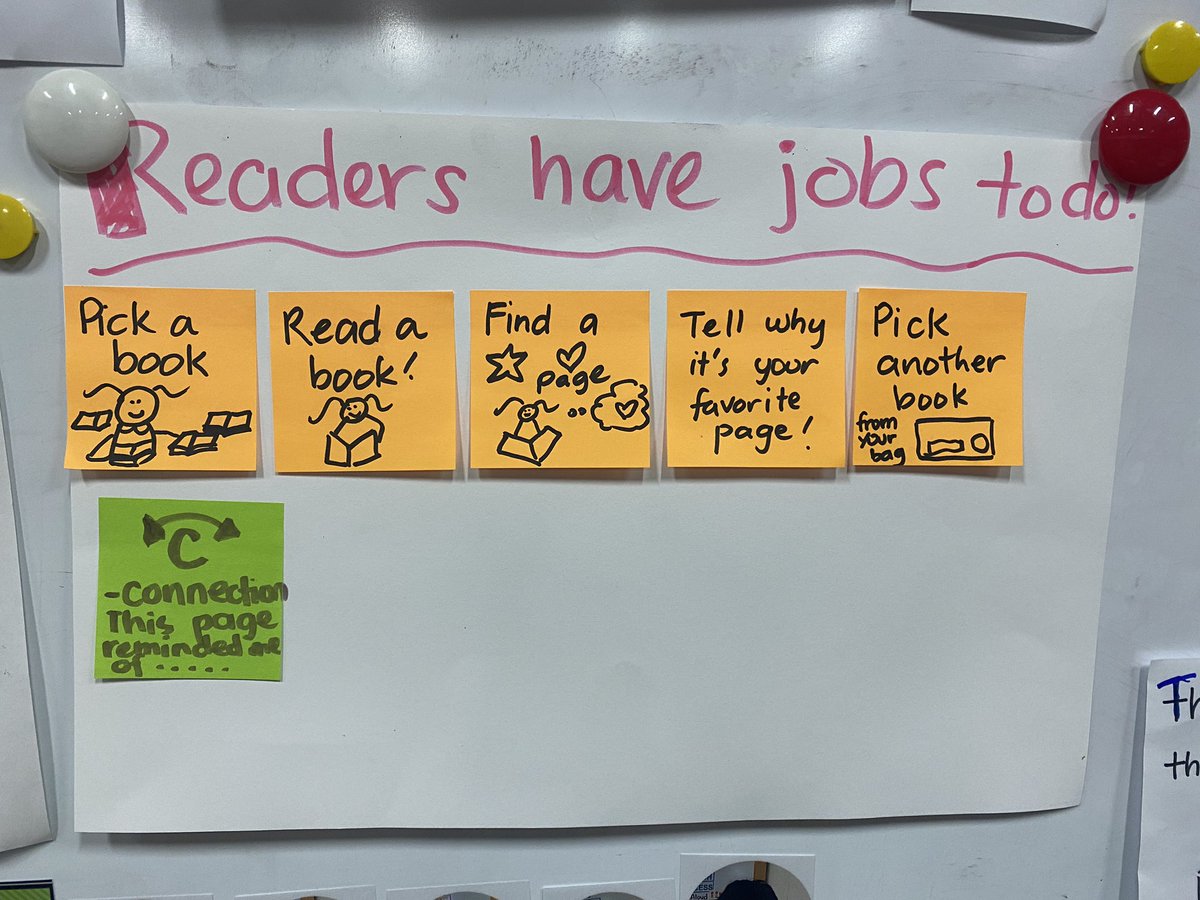 Readers have jobs to do!
Pick a
book
Read a
book!
Find a
page
Tell why
it's your
favorite
page!
Pick
another
book
from
your
bag
C
-Connection
This page
reminded me
of .....
Th
th
ESS
Aloud